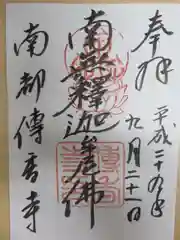 奉拝
平成二十九年
九月二十一日
南無釋迦牟尼佛
南都傳香寺